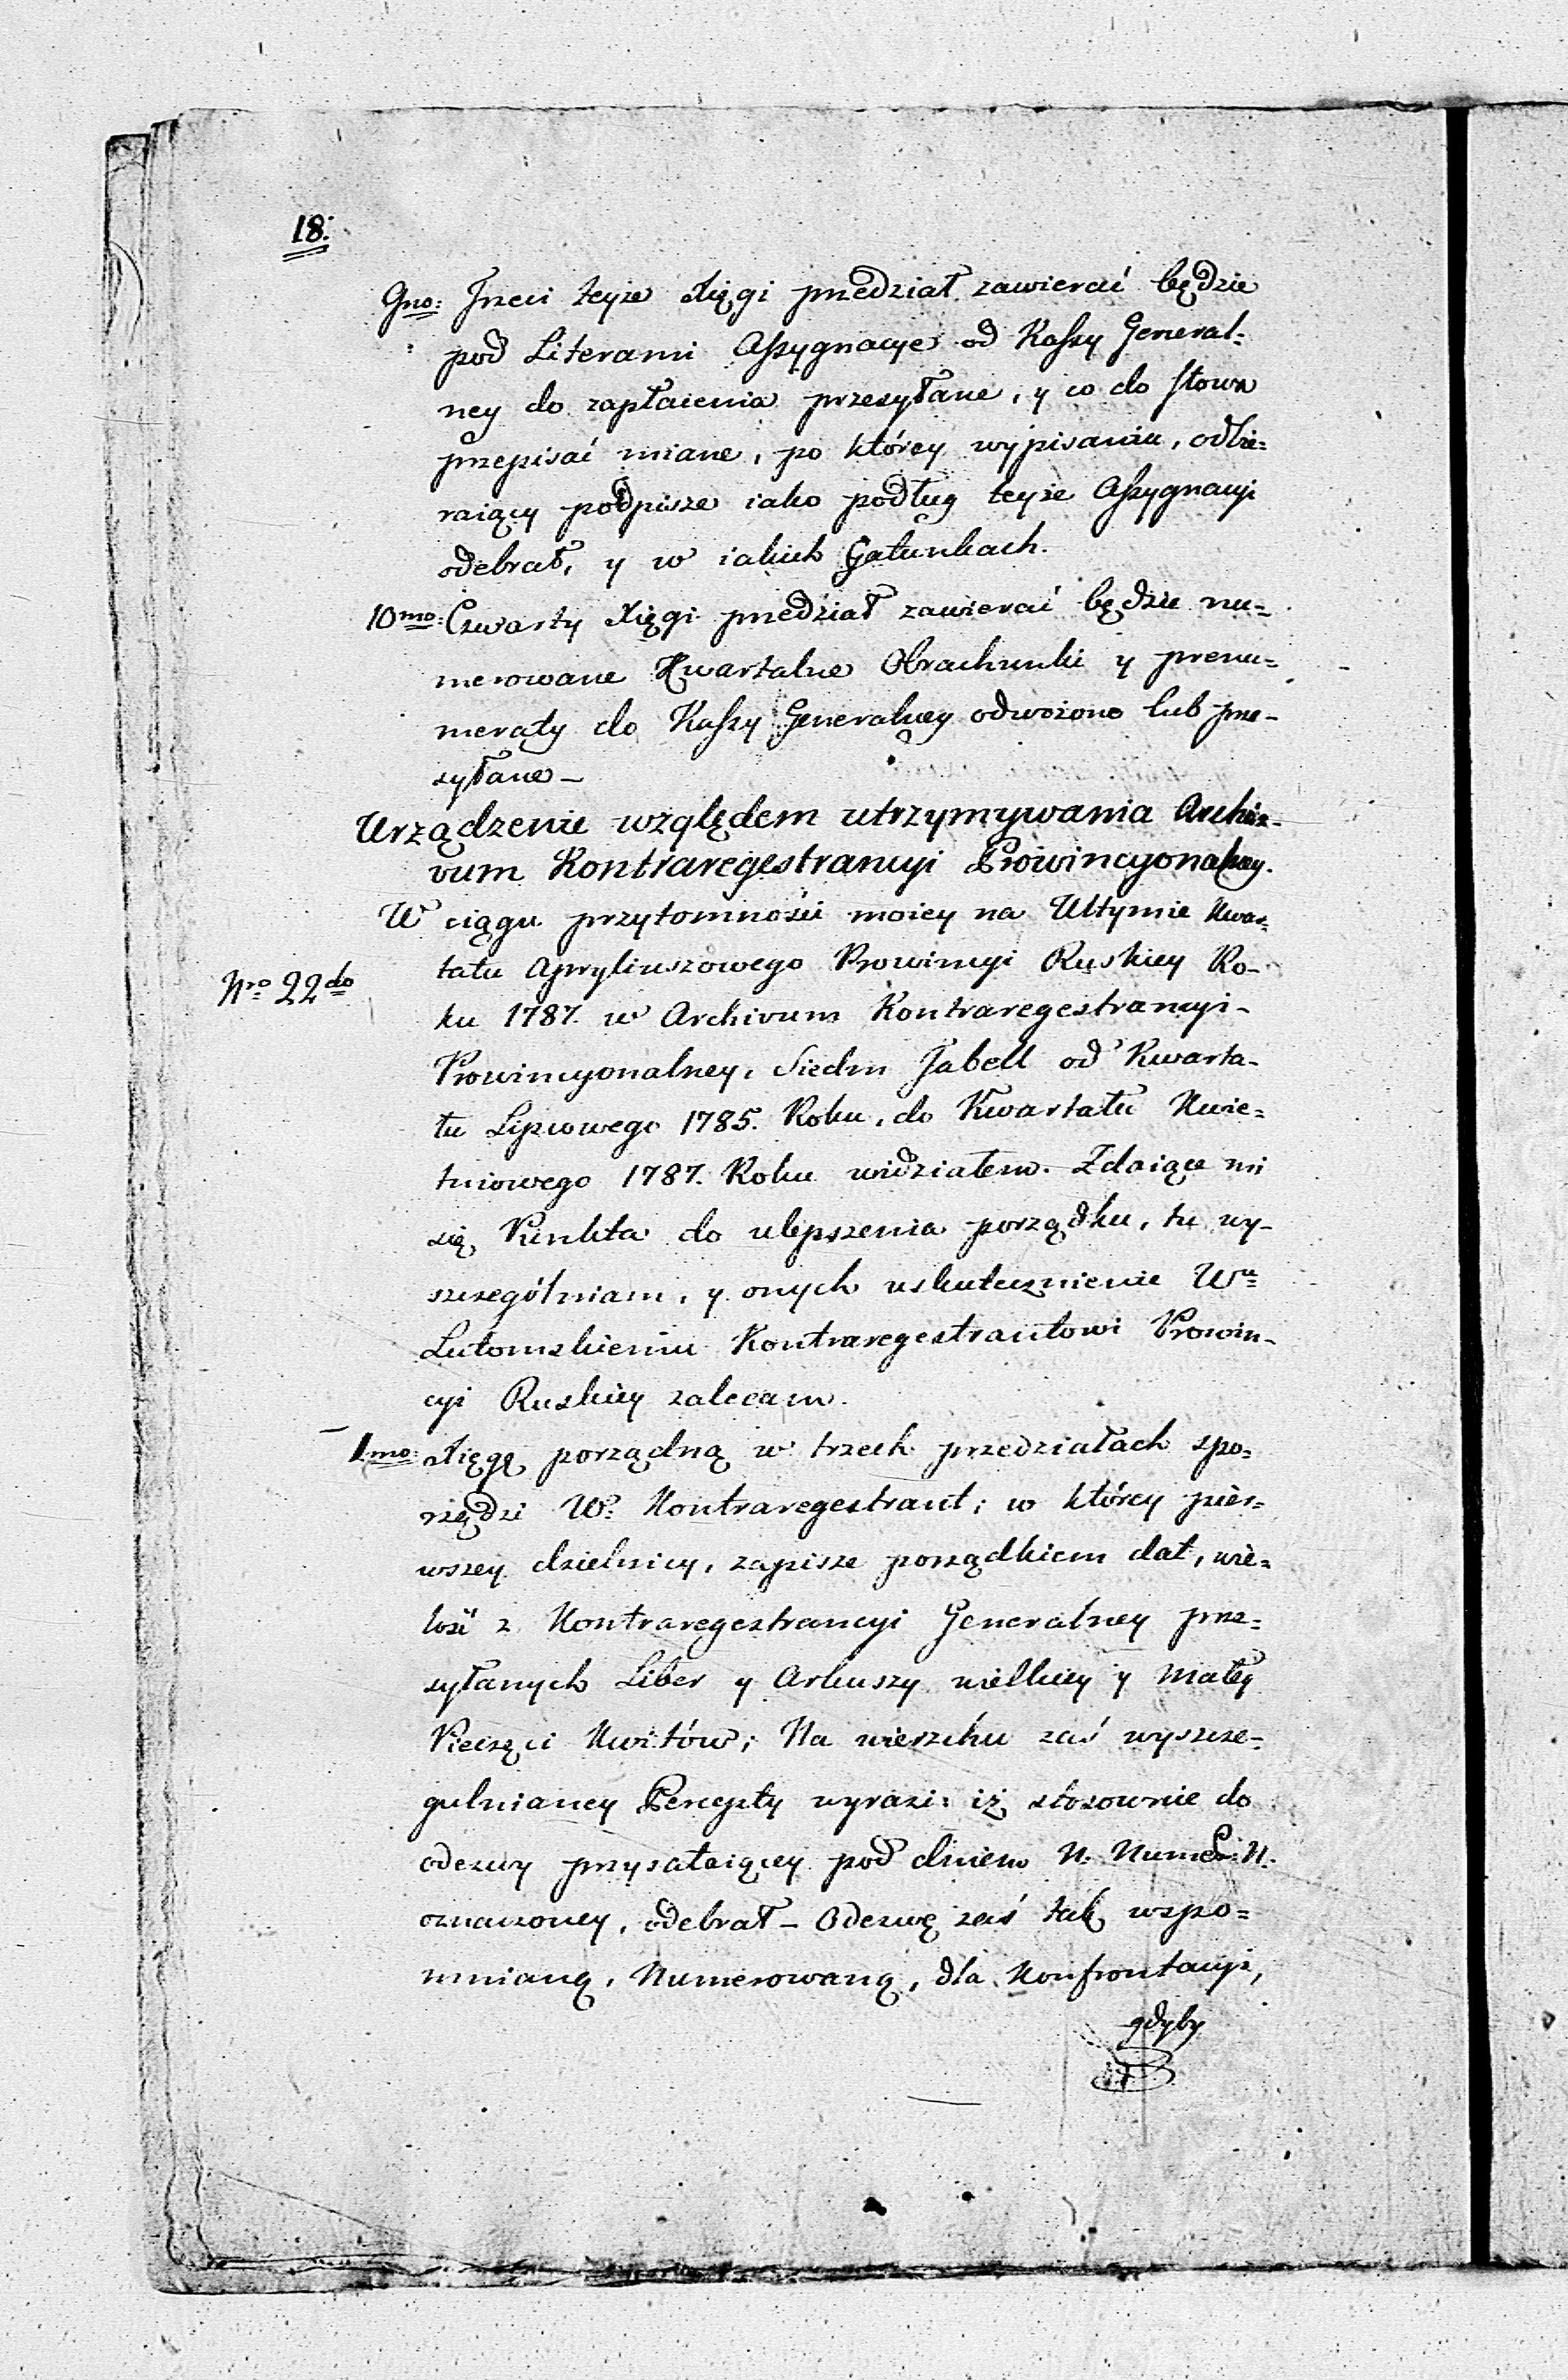 18.
9no: Trzeci teyże Xięgi przedział zawierać będzie
pod Literami Assygnacye od Kassy General-
ney do zapłacenia przesyłane, y co do słowa
przepisać miane, po którey wypisaniu, odbie-
raiący podpisze iako podług teyże Assygnacyi
odebrał, y w iakich Gatunkach.
10mo: Czwarty Xięgi przedział zawierać będzie nu-
merowane Kwartalne Obrachunki y prenu-
meraty do Kassy Generalney odwożone lub prze-
syłane –
Urządzenie względem utrzymywania Archi-
vum Kontraregestrancyi Prowincyonalney.
W ciągu przytomności moiey na Ultymie Kwar-
Nro 22do
tału Apryliuszowego Prowincyi Ruskiey Ro-
ku 1787. w Archivum Kontraregestrancyi
Prowincyonalney, Siedm Tabell od Kwarta-
łu Lipcowego 1785. Roku, do Kwartału Kwie-
tniowego 1787. Roku widziałem. Zdaiące mi
się Punkta do ulepszenia porządku, tu wy-
szczególniam, y onych uskutecznienie Wu
Lutomskiemu Kontraregestrantowi Prowin-
cyi Ruskiey zalecam.
1mo: Xięgę porządną w trzech przedziałach spo-
rządzi W: Kontraregestrant; w którey pier-
wszey dzielnicy, zapisze porządkiem dat, wie-
lość z Kontraregestrancyi Generalney prze-
syłanych Liber y Arkuszy wielkiey y małey
Pieczęci Kwitów; Na wierzchu zaś wyszcze-
gulnianey Percepty wyrazi: iż stosownie do
odezwy przysałaiącey pod dniem N. Numer: N.
oznaczoney, odebrał – Odezwę zaś tak wspo-
mnianą, Numerowaną, dla Konfrontacyi,
gdyby